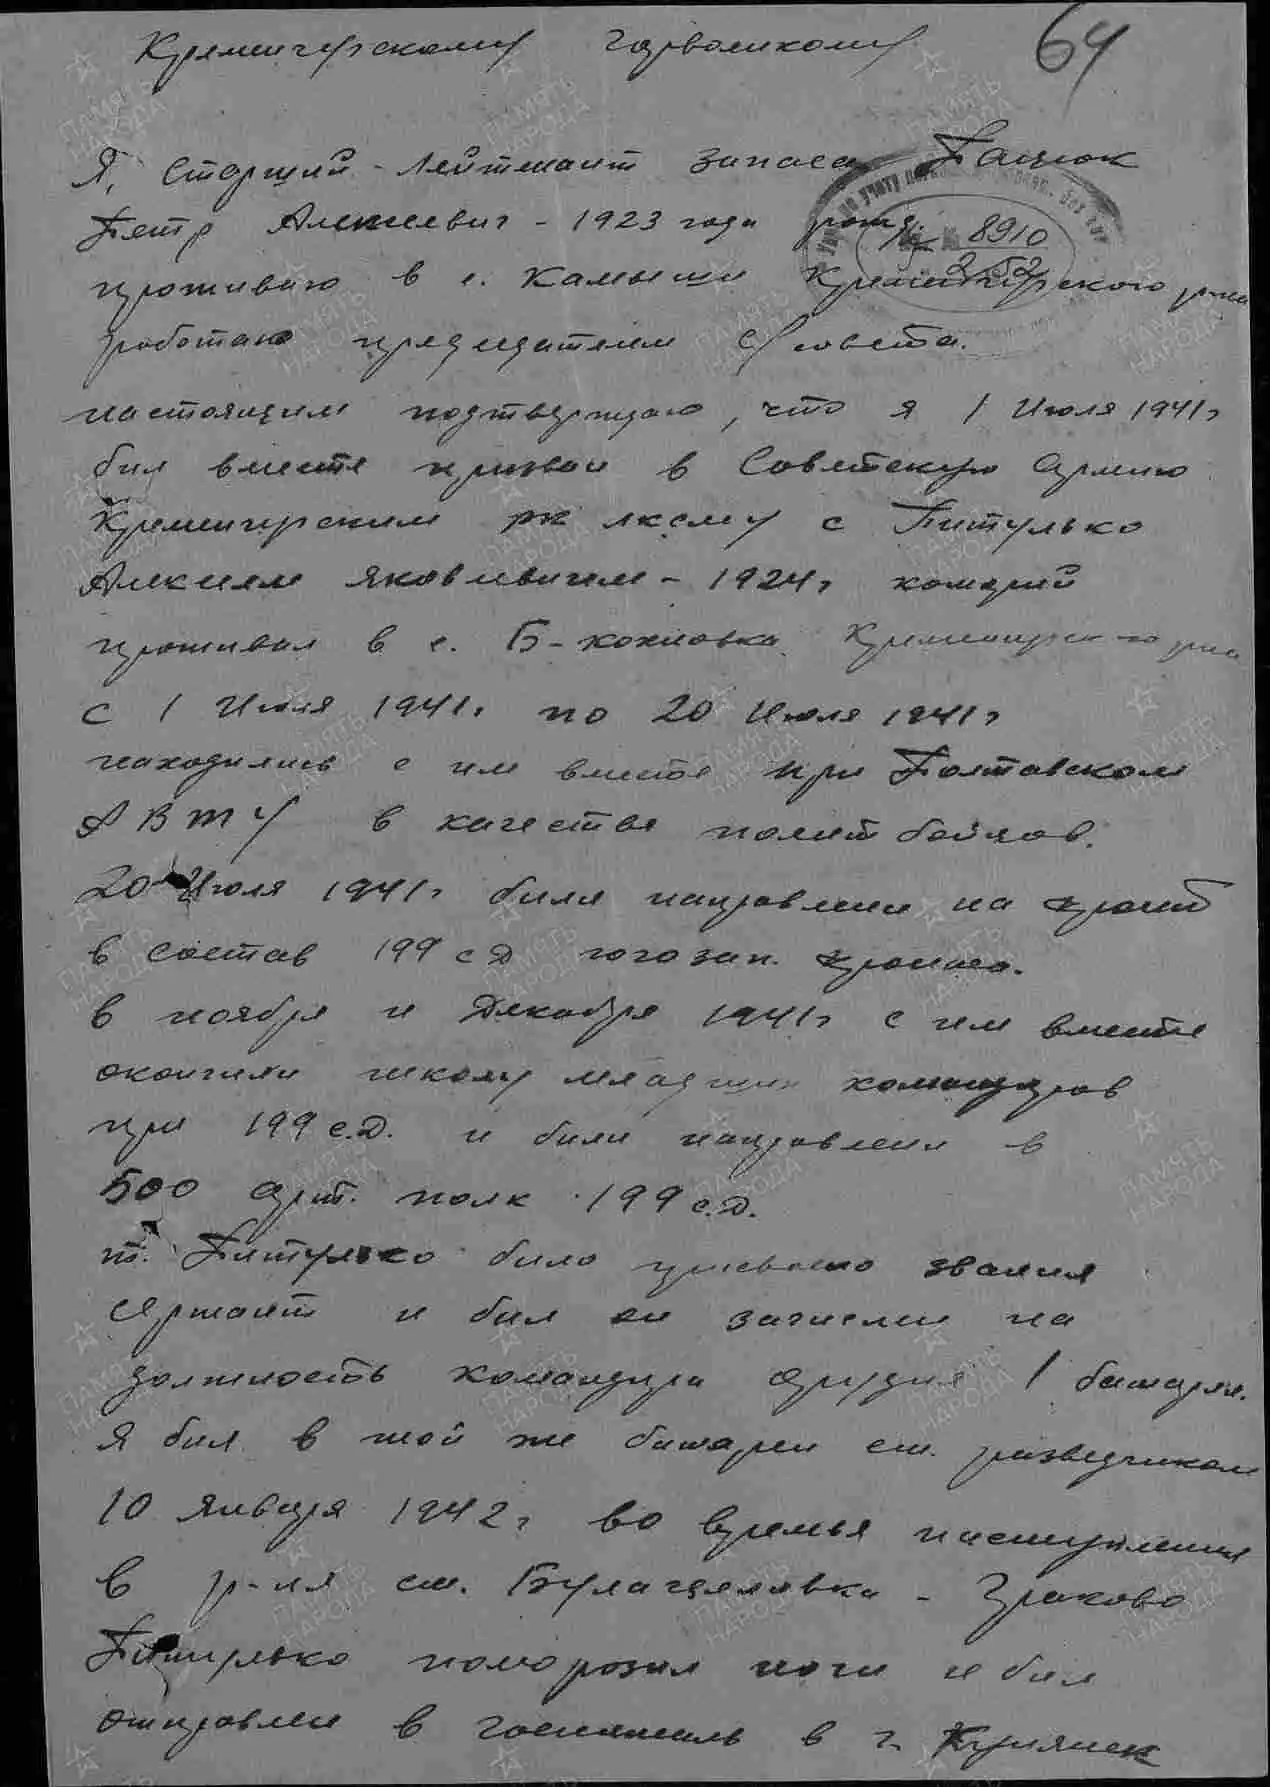 Кременчугскому Горвоенкому
64
Я, Старший Лейтенант запаса Пацюк
Петр Алексеевич - 1923 года рожд.
№ 8910
252
проживаю в с. Камыши Кременчугского р-на
работаю председателем с/совета.
настоящим подтверждаю, что я 1 Июля 1941г
бил вместе призван в Советскую Армию
Кременчугским рк лксму с Питулько
Алексеем Яковлевичем - 1924г который
проживал в с. Б-Кохновка Кременчугского р-на
с 1 Июля 1941г по 20 Июля 1941г
находились с ним вместе при Полтавском
АВТУ в качестве полит бойцов.
20 Июля 1941г били направлени на фронт
в состав 199 сд югозап. фронта.
в ноябре и декабре 1941г с ним вместе
окончили школу младших командиров
при 199 с.д. и били направлени в
500 арт. полк 199 с.д.
т. Питулько било присвоено звания
сержант и бил он зачислен на
должность командира орудия 1 батареи.
Я бил в той же батареи ст. разведчиком
10 января 1942г во время наступления
в р-не ст. Булацеловка - Граково
Питулько поморозил ноги и бил
отправлен в госпиталь в г. Купянск
ПАМЯТЬ НАРОДА